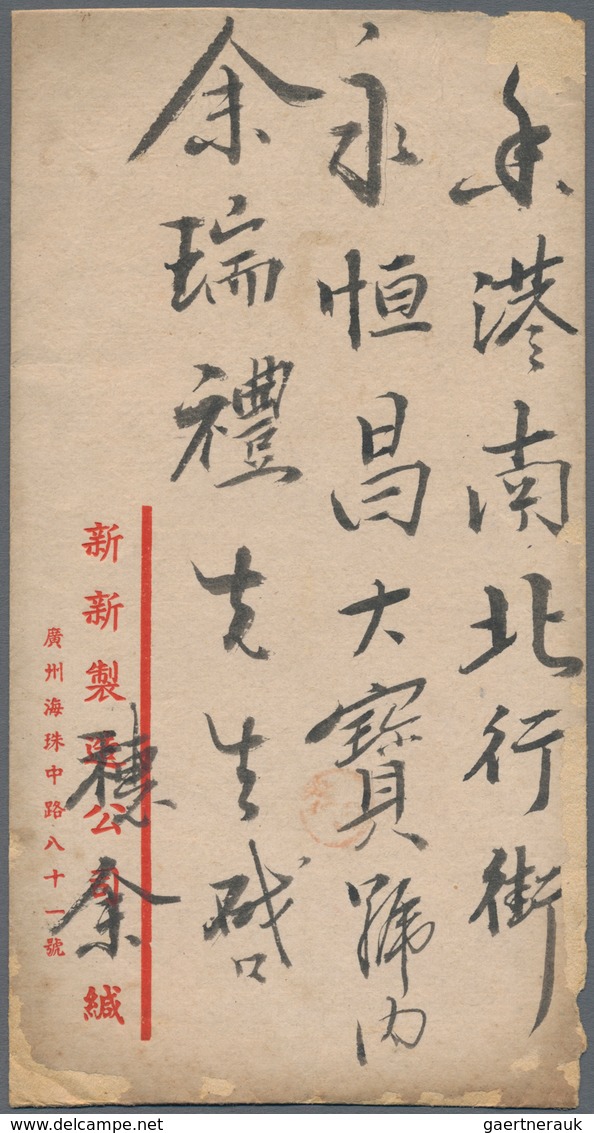 香港南北行街
永恒昌大寶號内
余瑞禮先生啓
穗余
新新製造公司緘
廣州海珠中路八十一號
DELCAMPE.NET
gaertnerauk